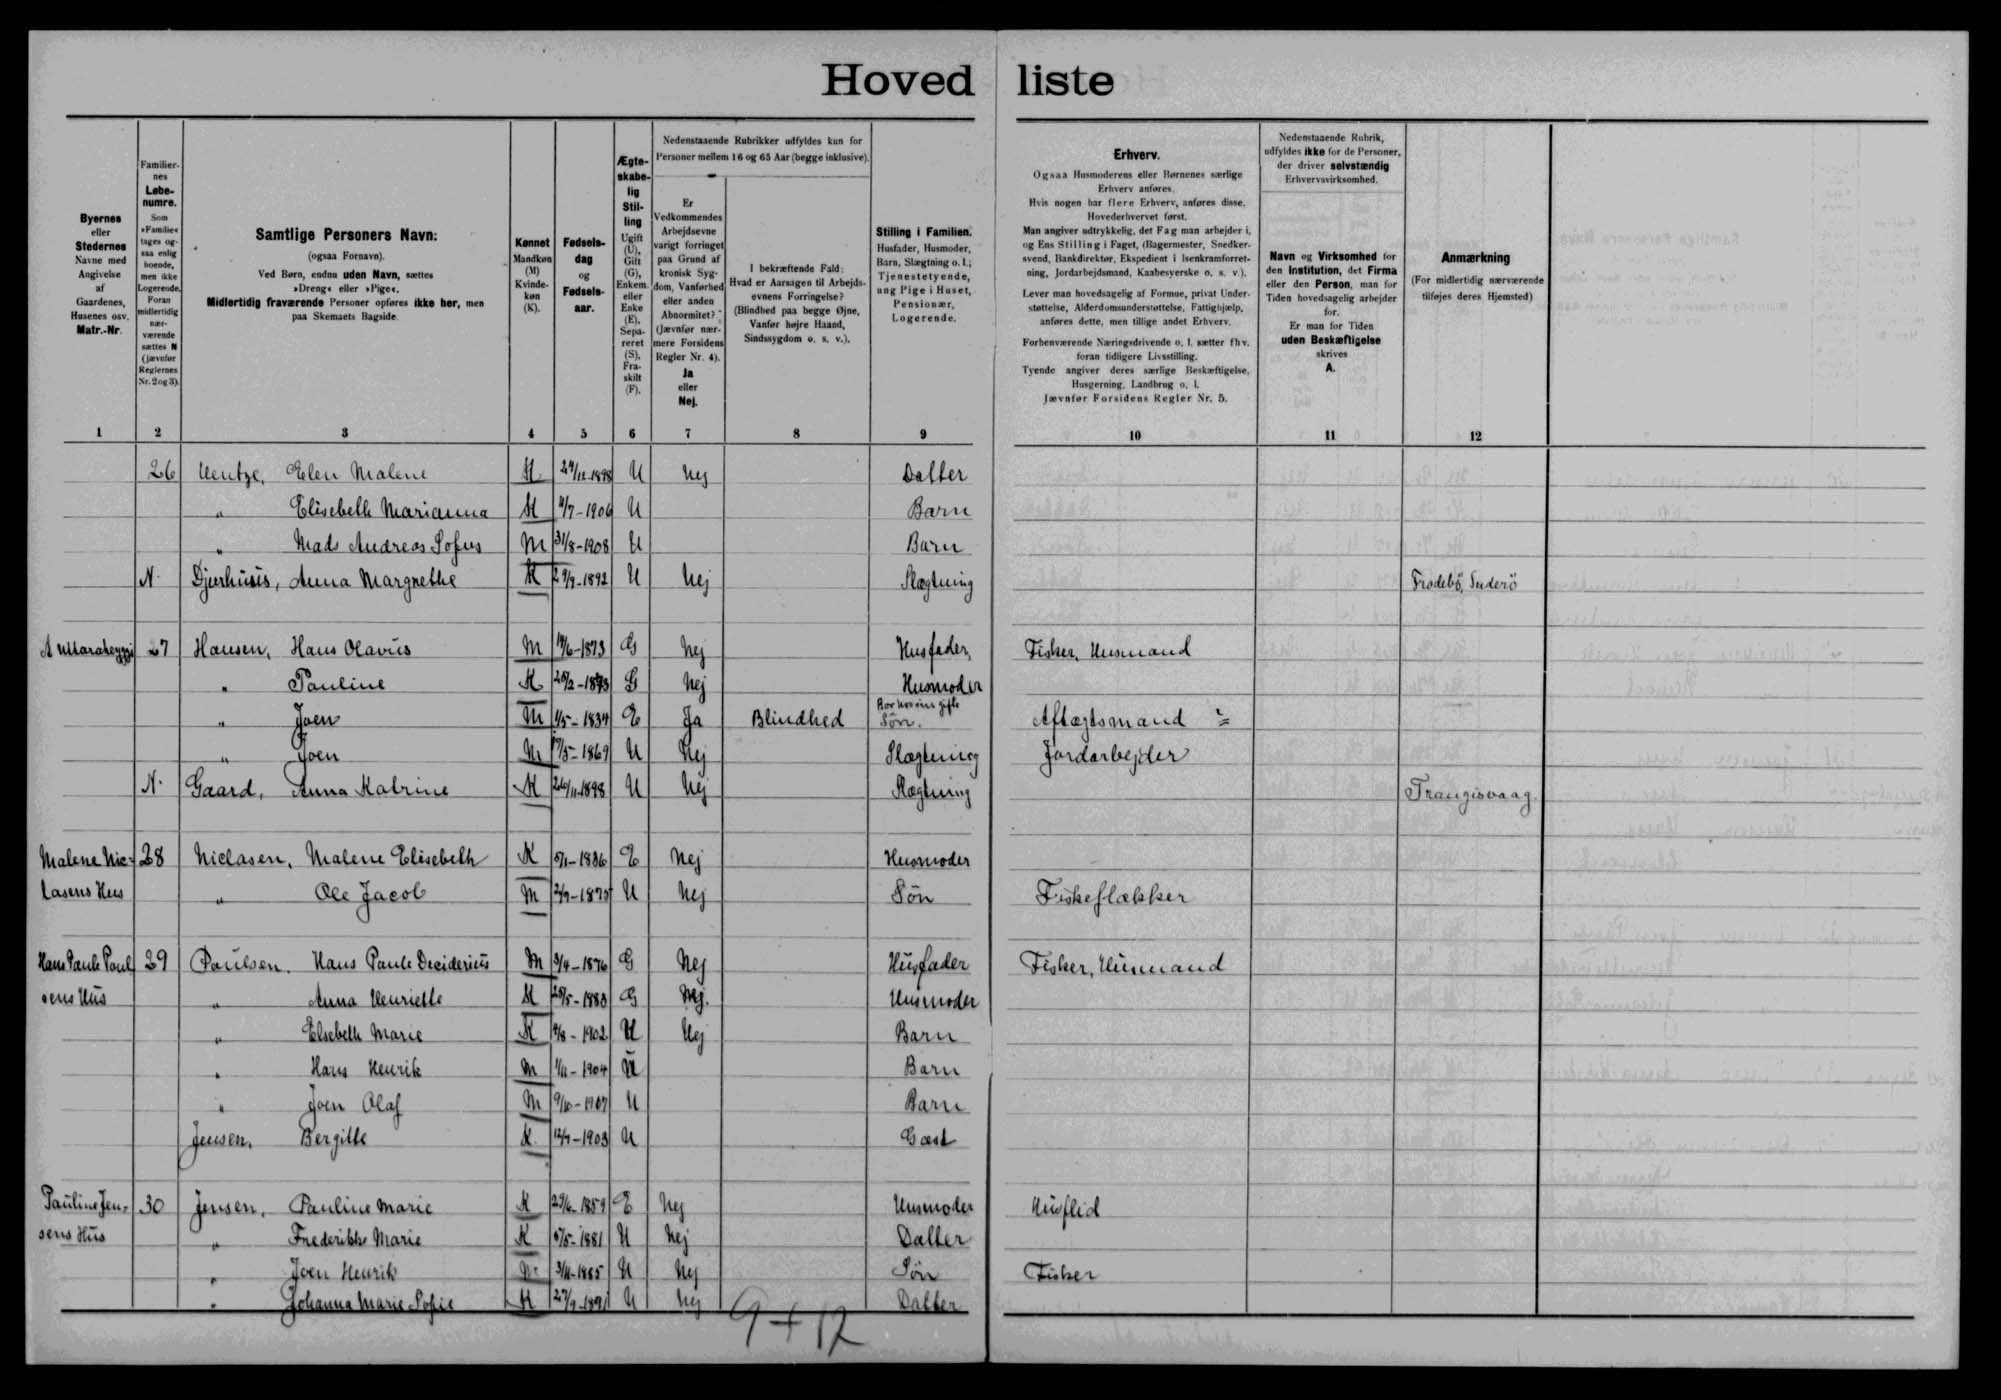 Hoved liste
Byernes
eller
Stedernes
Navne med
Angivelse
af
Gaardenes,
Husenes osv.
Matr.-Nr.
Familier-
nes
Løbe-
numre.
Som
»Familie«
tages og-
saa enlig
boende,
men ikke
Logerende.
Foran
midlertidig
nær-
værende
sættes N
(jævnfør
Reglernes
Nr. 2 og 3).
Samtlige Personers Navn:
(ogsaa Fornavn).
Ved Børn, endnu uden Navn, sættes
»Dreng« eller »Pige«.
Midlertidig fraværende Personer opføres ikke her, men
paa Skemaets Bagside.
Kønnet
Mandkøn
(M)
Kvinde-
køn
(K).
Fødsels-
dag
og
Fødsels-
aar.
Ægte-
skabe-
lig
Stil-
ling
Ugift
(U),
Gift
(G),
Enkem.
eller
Enke
(E),
Sepa-
reret
(S),
Fra-
skilt
(F).
Nedenstaaende Rubrikker udfyldes kun for
Personer mellem 16 og 65 Aar (begge inklusive).
Er
Vedkommendes
Arbejdsevne
varigt forringet
paa Grund af
kronisk Syg-
dom, Vanførhed
eller anden
Abnormitet?
(Jævnfør nær-
mere Forsidens
Regler Nr. 4).
Ja
eller
Nej.
I bekræftende Fald:
Hvad er Aarsagen til Arbejds-
evnens Forringelse?
(Blindhed paa begge Øjne,
Vanfør højre Haand,
Sindssygdom o. s. v.).
Stilling i Familien.
Husfader, Husmoder,
Barn, Slægtning o. l.;
Tjenestetyende,
ung Pige i Huset,
Pensionær,
Logerende.
Erhverv.
Ogsaa Husmoderens eller Børnenes særlige
Erhverv anføres.
Hvis nogen har flere Erhverv, anføres disse.
Hovederhvervet først.
Man angiver udtrykkelig, det Fag man arbejder i,
og Ens Stilling i Faget, (Bagermester, Snedker-
svend, Bankdirektør, Ekspedient i Isenkramforret-
ning, Jordarbejdsmand, Kaabesyerske o. s. v.).
Lever man hovedsagelig af Formue, privat Under-
støttelse, Alderdomsunderstøttelse, Fattighjælp,
anføres dette, men tillige andet Erhverv.
Forhenværende Næringsdrivende o. l. sætter fhv.
foran tidligere Livsstilling.
Tyende angiver deres særlige Beskæftigelse,
Husgerning, Landbrug o. l.
Jævnfør Forsidens Regler Nr. 5.
Nedenstaaende Rubrik,
udfyldes ikke for de Personer,
der driver selvstændig
Erhvervsvirksomhed.
Navn og Virksomhed for
den Institution, det Firma
eller den Person, man for
Tiden hovedsagelig arbejder
for.
Er man for Tiden
uden Beskæftigelse
skrives
A.
Anmærkning
(For midlertidig nærværende
tilføjes deres Hjemsted)
1 2 3 4 5 6 7 8 9 10 11 12
26 Hentze, Elen Malene K 29/12-1898 U Nej Datter
" Elisebeth Marianna K 4/7-1906 U Barn
" Mads Andreas Sofus M 31/8-1908 U Barn
N. Djurhuus, Anna Margrethe K 29/9-1892 U Nej Slægtning Frodebö, Suderö
27 Hansen, Hans Olavus M 19/6-1873 G Nej Husfader, Fisker, Husmand
" Pauline K 1873 G Nej Husmoder
" Joen M 1/5-1834 E Ja Blindhed Søn. Aftægtsmand
" Joen M 1869 U Nej Slægtning Jordarbejder
N. Gaard, Anna Katrine K 26/11-1898 U Nej Slægtning Trangisvaag.
Malene Nic- 28 Niclasen, Malene Elisebeth K 1836 E Nej Husmoder
lasens Hus " Ole Jacob M U Nej Søn Fiskeflækker
Hans Paule Poul 29 Poulsen, Hans Paule Desiderius M 3/4-1876 G Nej Husfader Fisker, Husmand
sens Hus " Anna Henriette K 1883 G Nej. Husmoder
" Elsebeth Marie K 1902 U Nej Barn
" Hans Henrik M 1/11-1904 U Barn
" Joen Olaf M 9/10-1907 U Barn
Jensen, Bergitte K. 1903 U Gæst
Pauline Jen- 30 Jensen, Pauline Marie K 29/6-1859 E Nej Husmoder Husflid
sens Hus " Frederikke Marie K 1881 U Nej Datter
" Joen Henrik M. 3/11-1885 U Nej Søn Fisker
" Johanna Marie Sofie K 27/9-1891 U Nej Datter
9+12